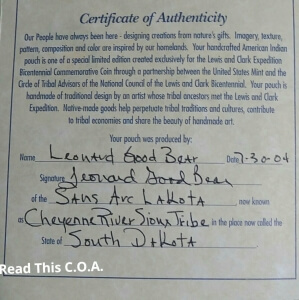 Certificate of Authenticity
Our People have always been here - designing creations from nature's gifts. Imagery, texture,
pattern, composition and color are inspired by our homelands. Your handcrafted American Indian
pouch is one of a special limited edition created exclusively for the Lewis and Clark Expedition
Bicentennial Commemorative Coin through a partnership between the United States Mint and the
Circle of Tribal Advisors of the National Council of the Lewis and Clark Bicentennial. Your pouch is
handmade of traditional design by an artist whose tribal ancestors met the Lewis and Clark
Expedition. Native-made goods help perpetuate tribal traditions and cultures, contribute
to tribal economies and share the beauty of handmade art.
Your pouch was produced by:
Name Leonard Good Bear Date 7-30-04
Signature Leonard Good Bear
of the Sans Arc Lakota, now known
as Cheyenne River Sioux Tribe in the place now called the
State of South Dakota
Read This C.O.A.